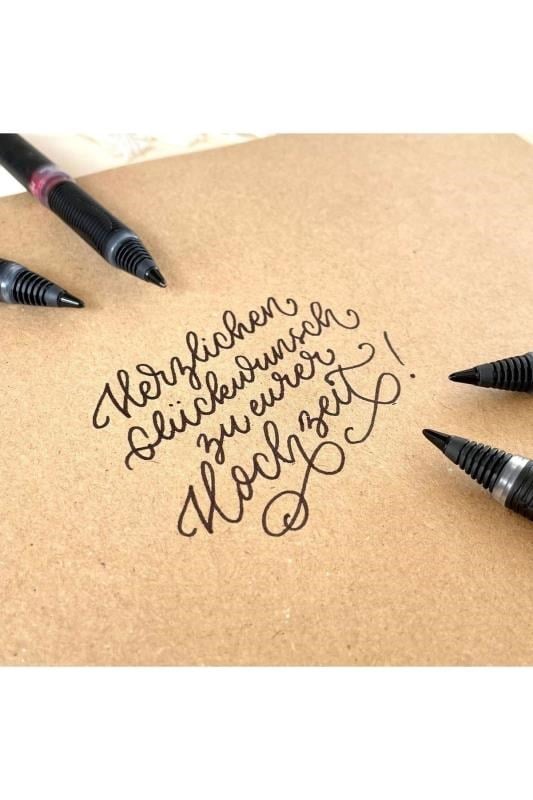 Herzlichen
Glückwunsch
zu eurer
Hochzeit!